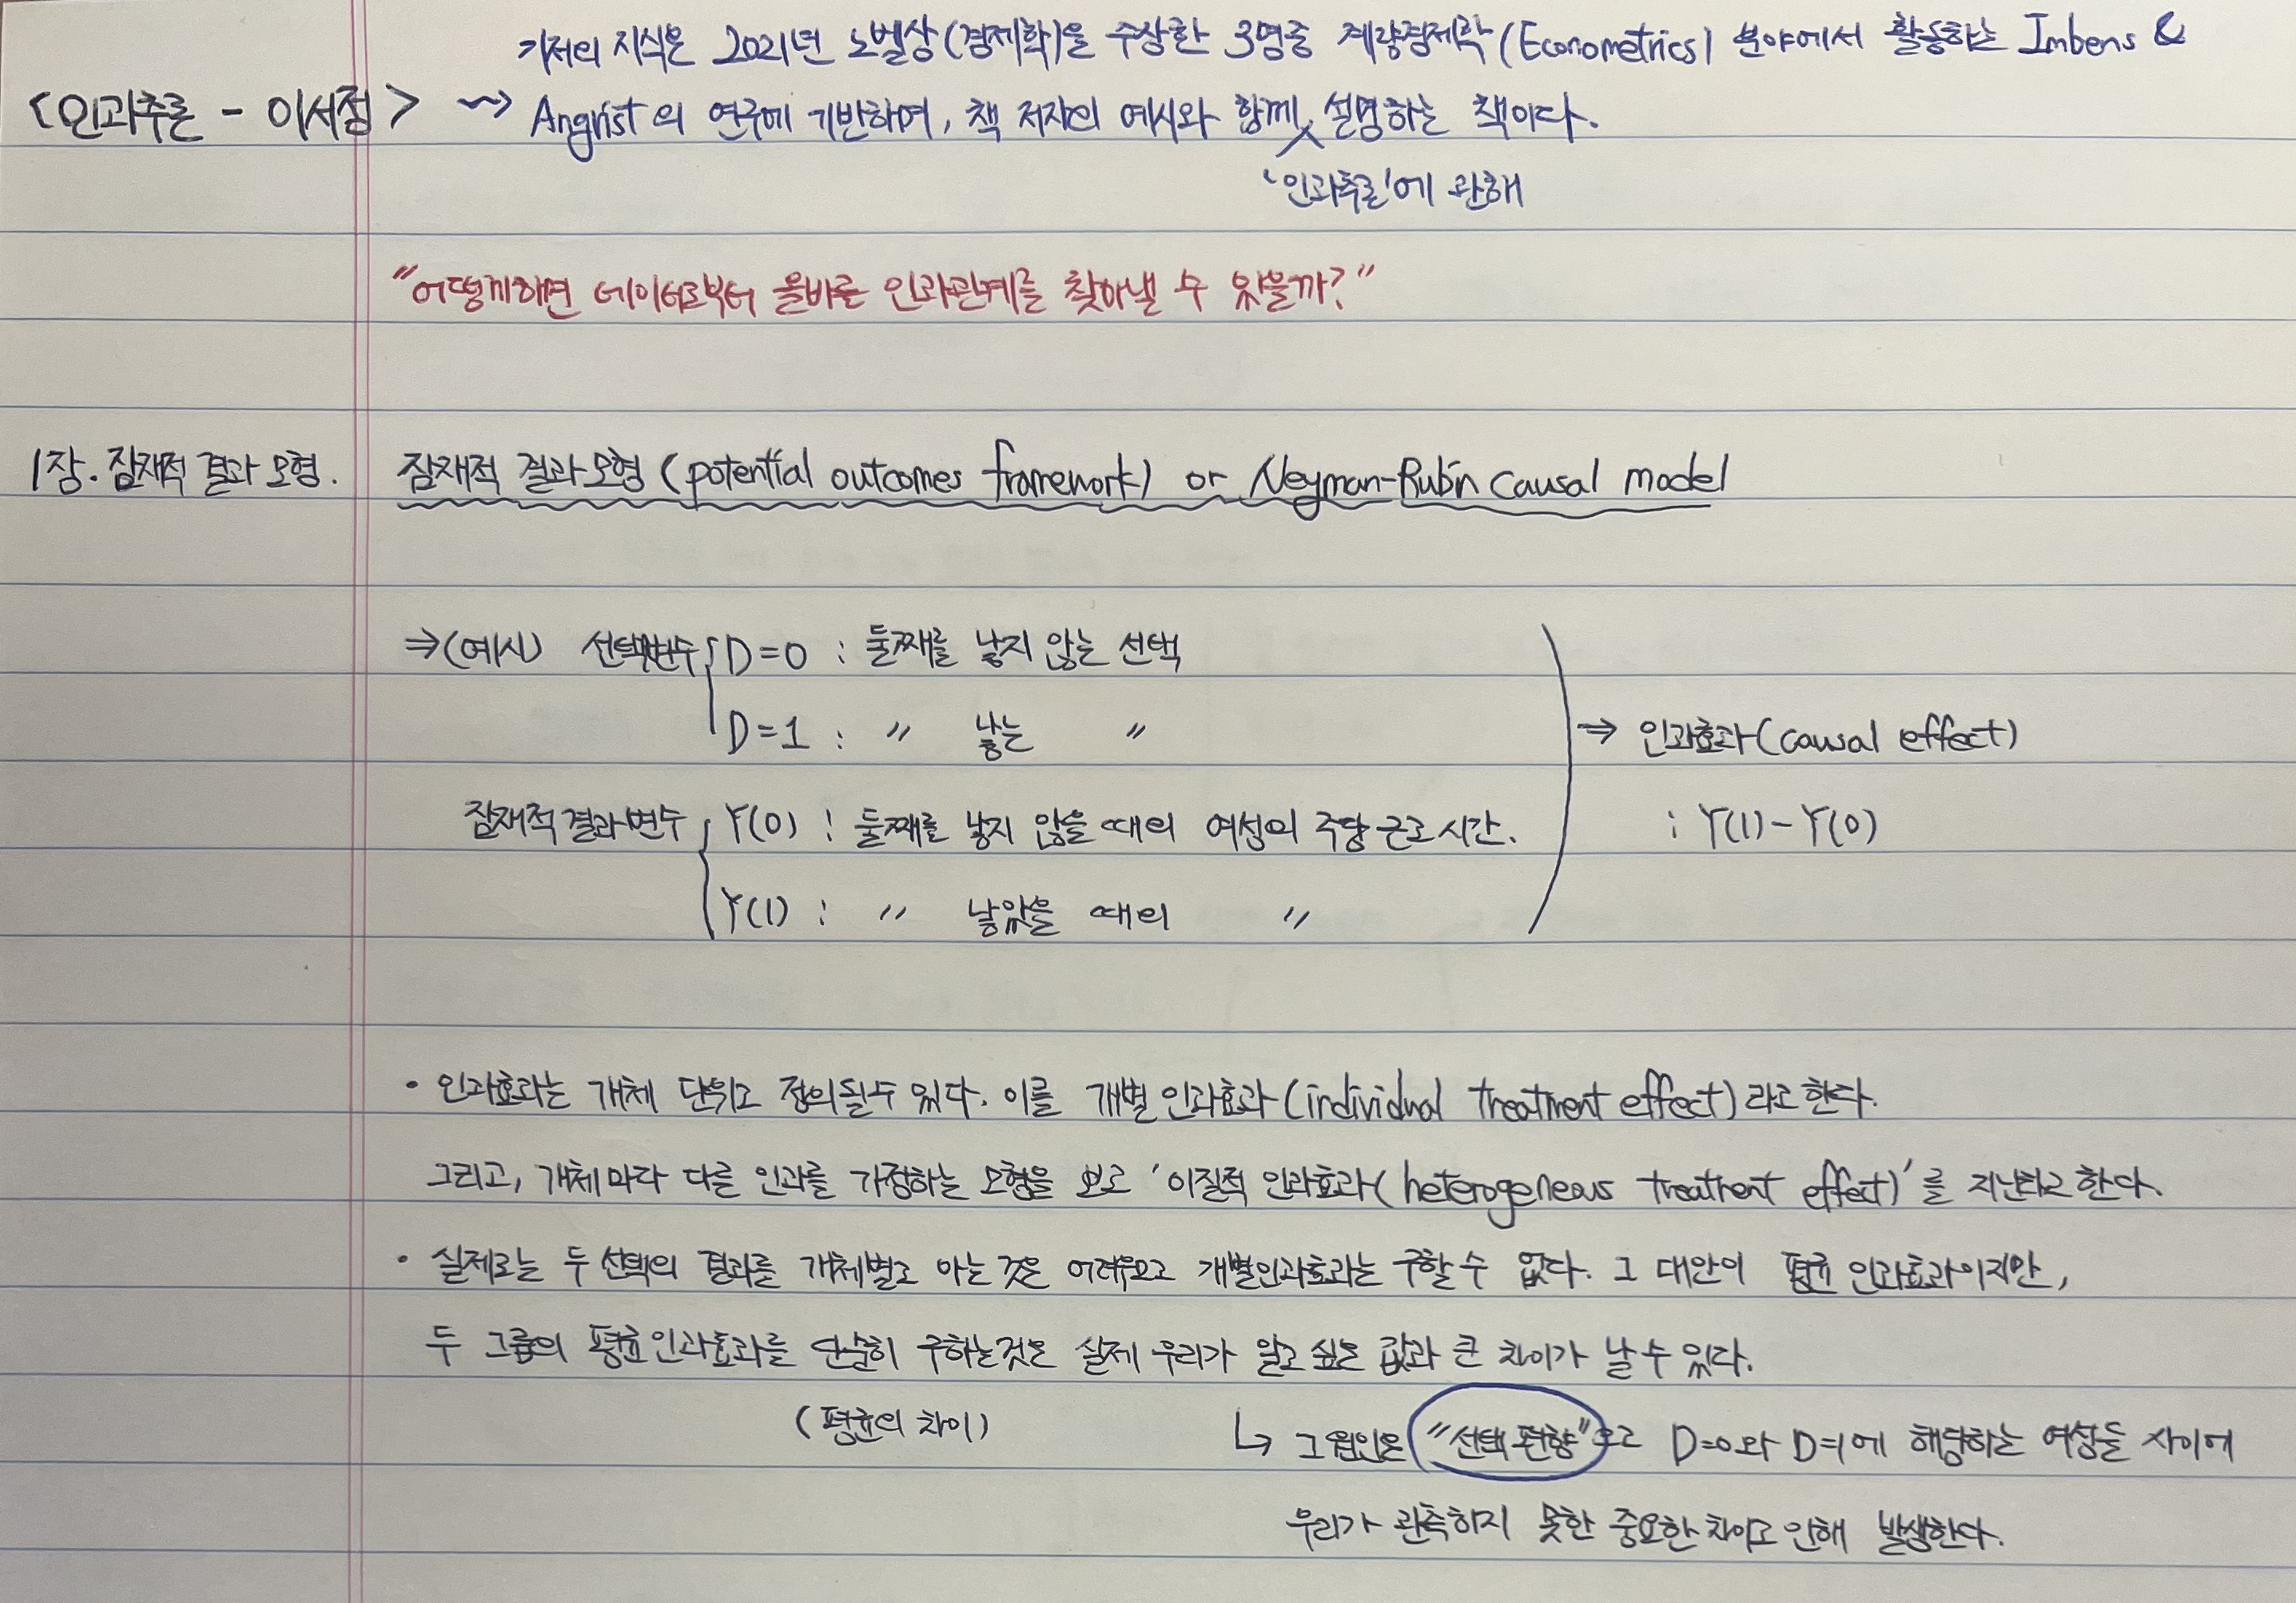 기저의 지식은 2021년 노벨상(경제학)을 수상한 3명중 계량경제학(Econometrics) 분야에서 활동하는 Imbens &
<인과추론 - 이서정> ~> Angrist의 연구에 기반하여, 책 저자의 예시와 함께 설명하는 책이다.
'인과추론'에 관해
"어떻게하면 데이터로부터 올바른 인과관계를 찾아낼 수 있을까?"
1장. 잠재적 결과 모형. 잠재적 결과모형 (potential outcomes framework) or Neyman-Rubin causal model
⇒(예시) 선택변수 { D=0 : 둘째를 낳지 않는 선택
D=1 : 〃 낳는 〃 ⇒ 인과효과(causal effect)
잠재적 결과변수 { Y(0) : 둘째를 낳지 않을 때의 여성의 주당 근로시간. : Y(1)-Y(0)
Y(1) : 〃 낳았을 때의 〃
• 인과효과는 개체 단위로 정의될수 있다. 이를 개별 인과효과(individual treatment effect)라고 한다.
그리고, 개체마다 다를 인과를 가정하는 모형을 보고 '이질적 인과효과(heterogeneous treatment effect)'를 지닌다고 한다.
• 실제로는 두 선택의 결과를 개체별로 아는 것은 어려우므로 개별인과효과는 구할 수 없다. 그 대안이 평균 인과효과이지만,
두 그룹의 평균인과효과를 단순히 구하는것은 실제 우리가 알고 싶은 값과 큰 차이가 날 수 있다.
(평균의 차이) ↳ 그 원인은 "선택 편향"으로 D=0와 D=1에 해당하는 여성들 사이에
우리가 관측하지 못한 중요한 차이로 인해 발생한다.